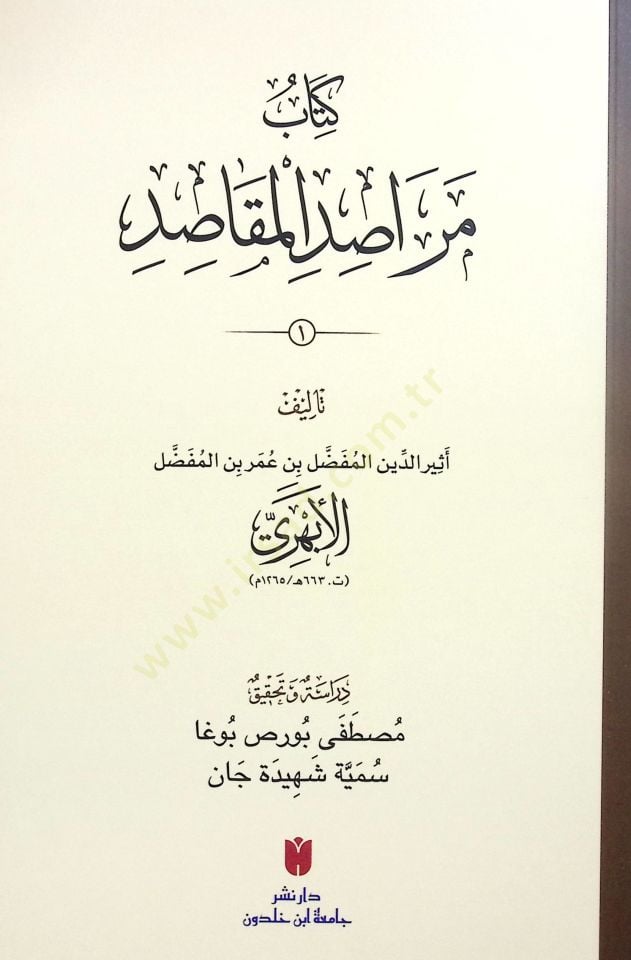 كِتَابُ
مَرَاصِدِ الْمَقَاصِدِ
١
تأليف
أَثِير الدِّين المُفَضَّل بِن عُمَر بِن المُفَضَّل
الأَبْهَرِيّ
(ت. ٦٦٣هـ/١٢٦٥م)
دِرَاسَةٌ وَتَحْقِيقٌ
مُصطَفَى بُورص بُوغا
سُمَيَّة شَهِيدَة جَان
دار نشر
جامعة ابن خلدون